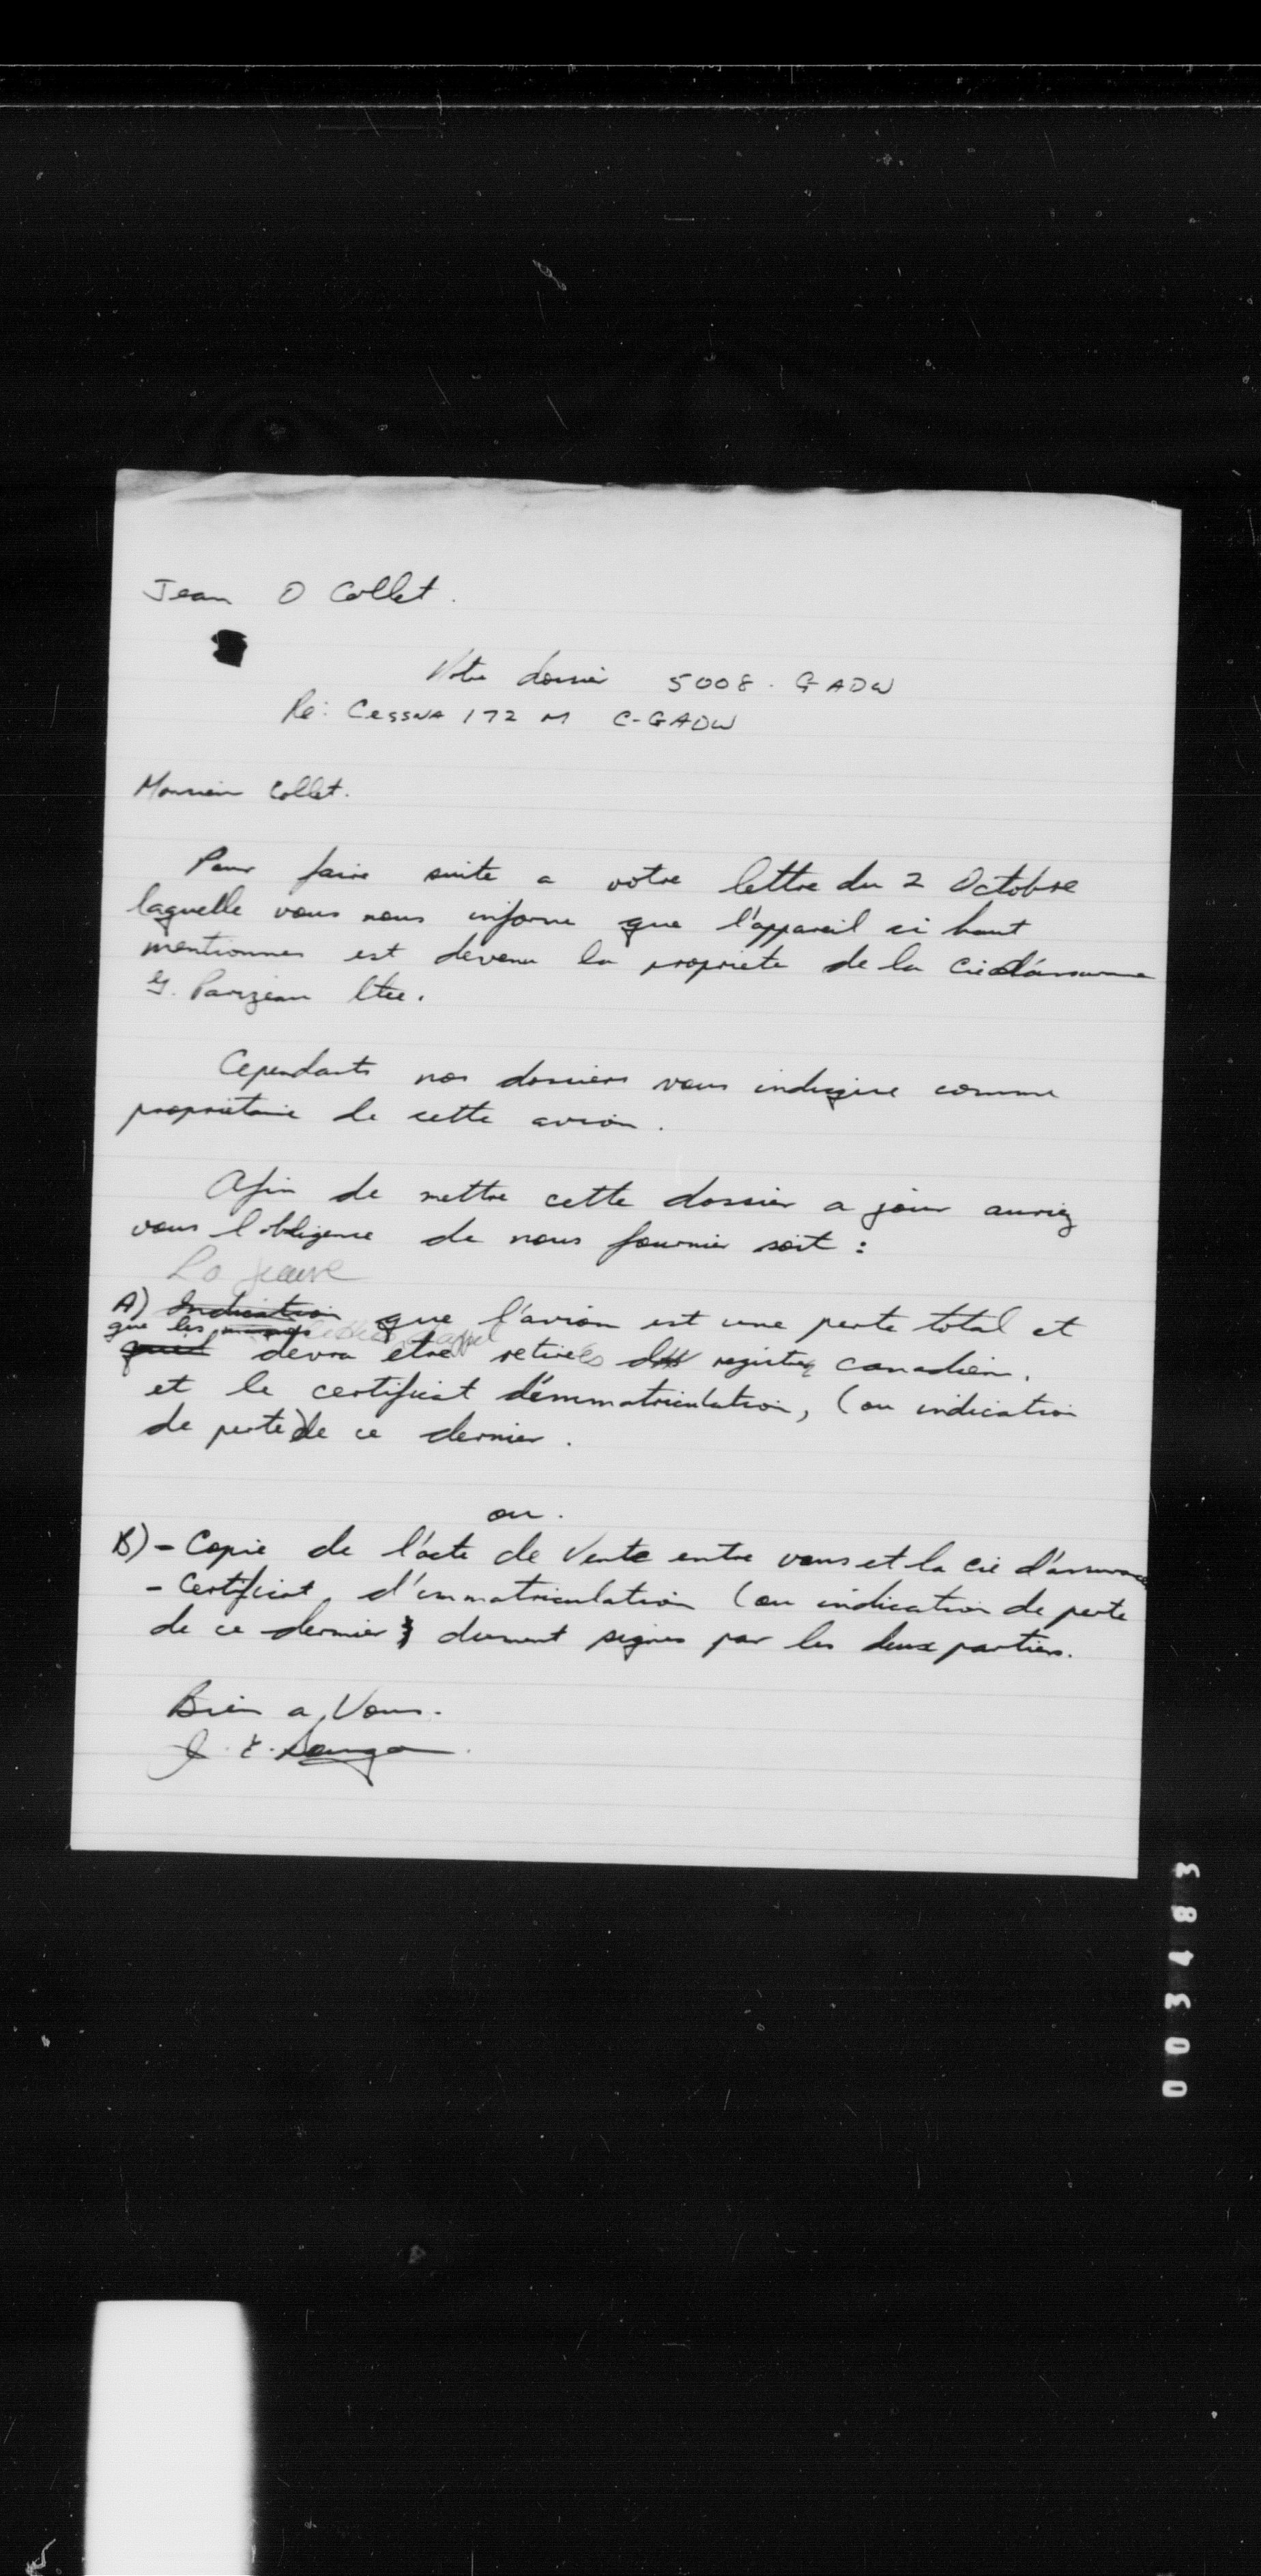 Jean O Collet.
Votre dossier 5008. GADW
Re: Cessna 172 M C-GADW
Monsieur Collet.
Pour faire suite a votre lettre du 2 Octobre
laquelle vous nous informe que l'appareil si haut
mentionner est devenu la propriete de la Cie d'assurance
G. Parizeau ltee.
Cependants nos dossiers vous indique comme
propriétaire de cette avion.
Afin de mettre cette dossier a jour auriez
vous l'obligence de nous fournier soit :
La preuve
A) Indication que l'avion est une perte total et
que les marques lettres d'appel
qu'il devra etre retirées des registre canadien.
et le certificat d'immatriculation, (ou indication
de perte) de ce dernier.
ou.
B) - Copie de l'acte de Vente entre vous et la cie d'assurance
- Certificat d'immatriculation (ou indication de perte
de ce dernier) dument signes par les deux parties.
Bien a Vous.
003183